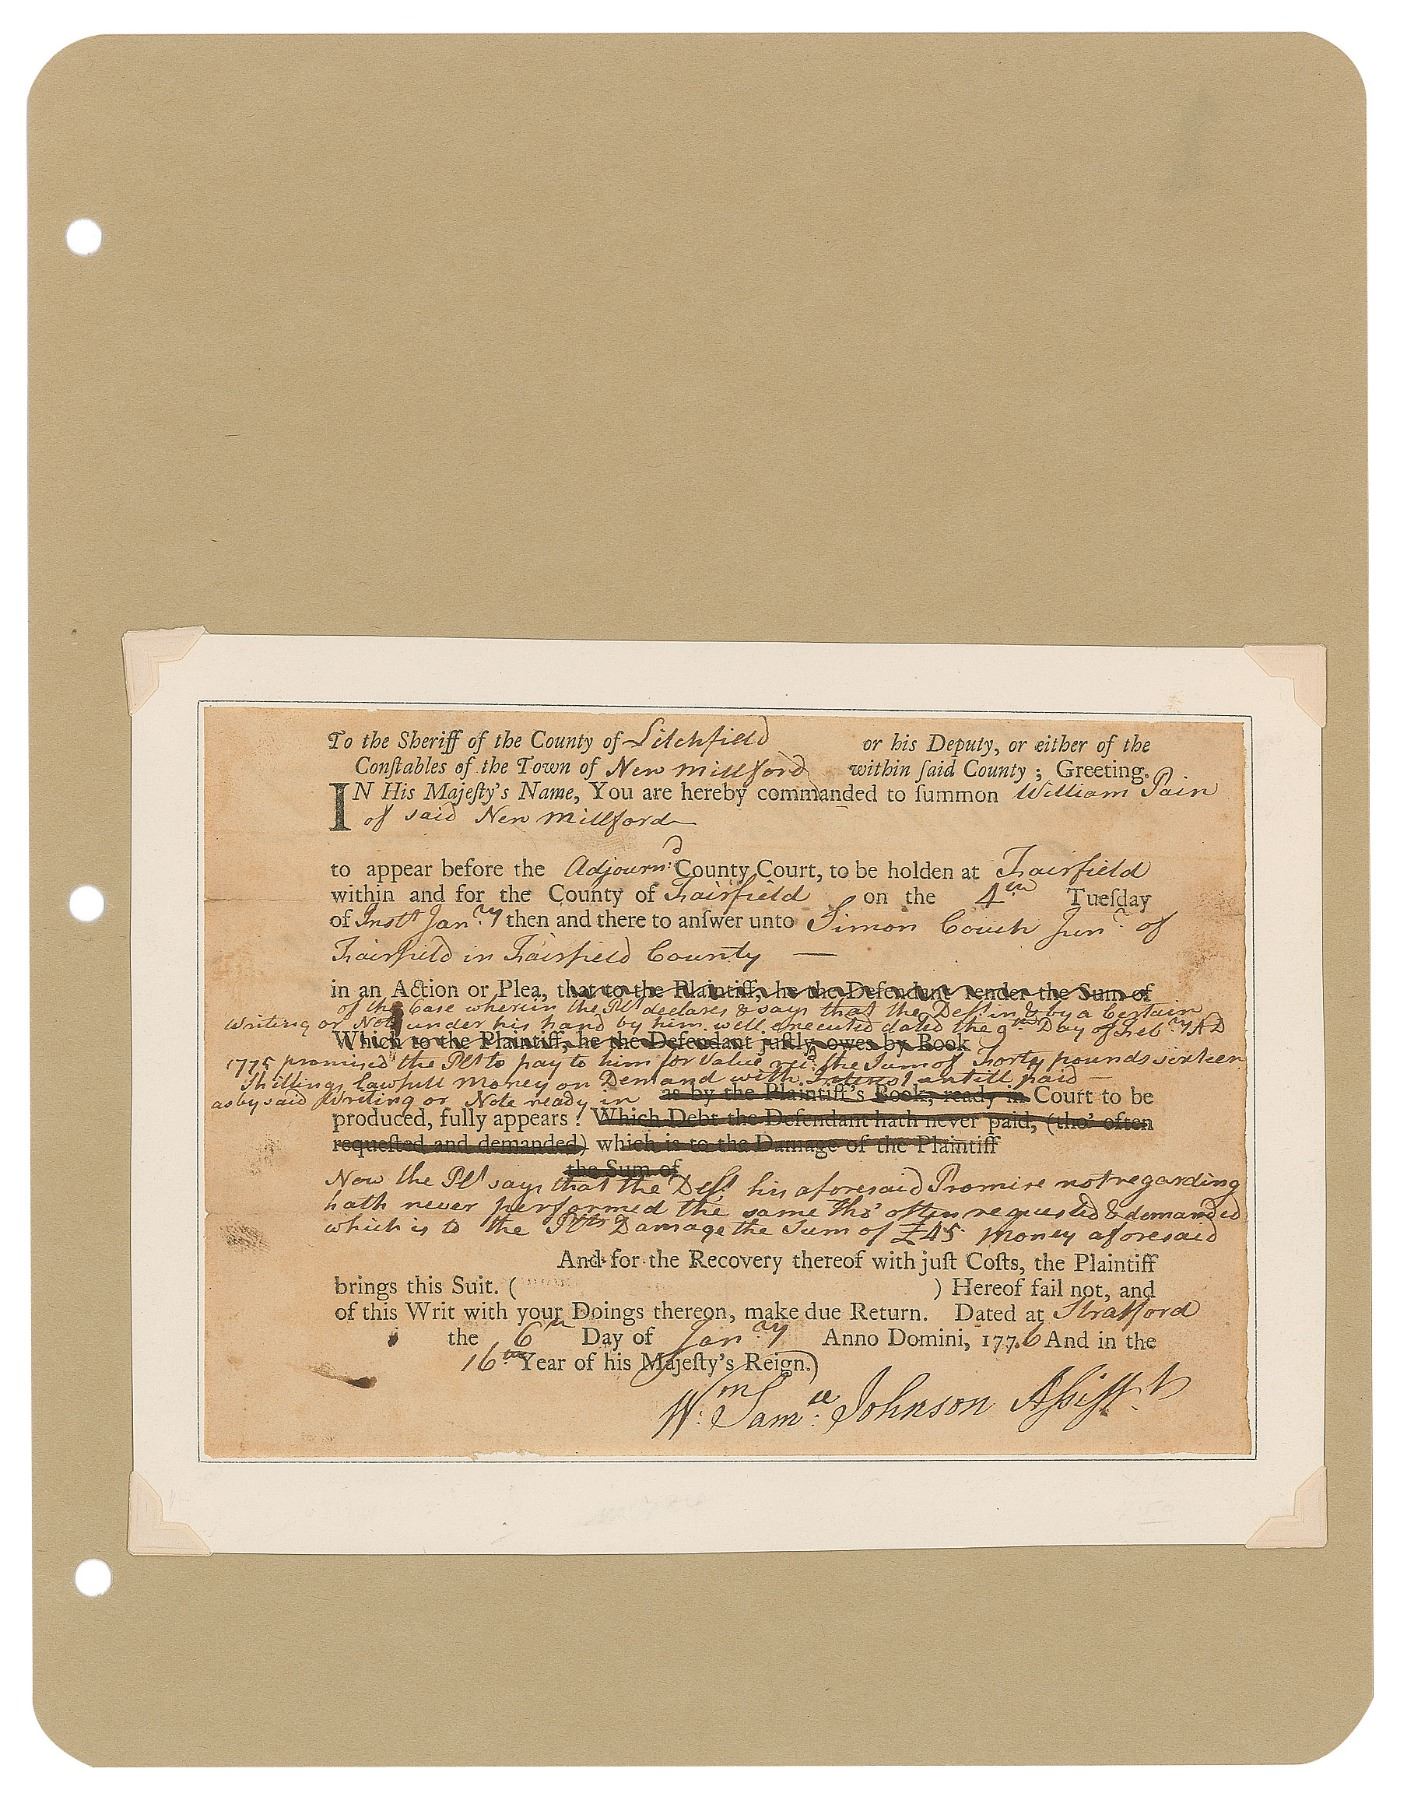 To the Sheriff of the County of Litchfield or his Deputy, or either of the
Conſtables of the Town of New Millford within ſaid County; Greeting.
IN His Majeſty's Name, You are hereby commanded to ſummon William Pain
of said New Millford
to appear before the Adjourn'd County Court, to be holden at Fairfield
within and for the County of Fairfield on the 4th Tueſday
of Inst Jan.ry then and there to anſwer unto Simon Couch Jun.r of
Fairfield in Fairfield County —
in an Action or Plea, that to the Plaintiff, he the Defendant render the Sum of
of the Case wherein the Plt declares & says that the Deft in & by a Certain
writing or Note under his hand by him well executed dated the 9th Day of Feb.ry AD
Which to the Plaintiff, he the Defendant juſtly owes by Book
1775 promised the Plt to pay to him for Value rec.d the Sum of Forty pounds sixteen
Shillings Lawfull money on Demand with Interest untill paid —
as by said Writing or Note ready in as by the Plaintiff's Book, ready in Court to be
produced, fully appears: Which Debt the Defendant hath never paid, (tho' often
requeſted and demanded) which is to the Damage of the Plaintiff
the Sum of
Now the Plt says that the Deft his aforesaid Promise not regarding
hath never performed the same tho' often requested & demanded
which is to the Plts Damage the Sum of £45 money aforesaid
And for the Recovery thereof with juſt Coſts, the Plaintiff
brings this Suit. ( ) Hereof fail not, and
of this Writ with your Doings thereon, make due Return. Dated at Stratford
the 6th Day of Jan.ry Anno Domini, 1776 And in the
16th Year of his Majeſty's Reign.)
W.m Sam.ll Johnson Assist.t